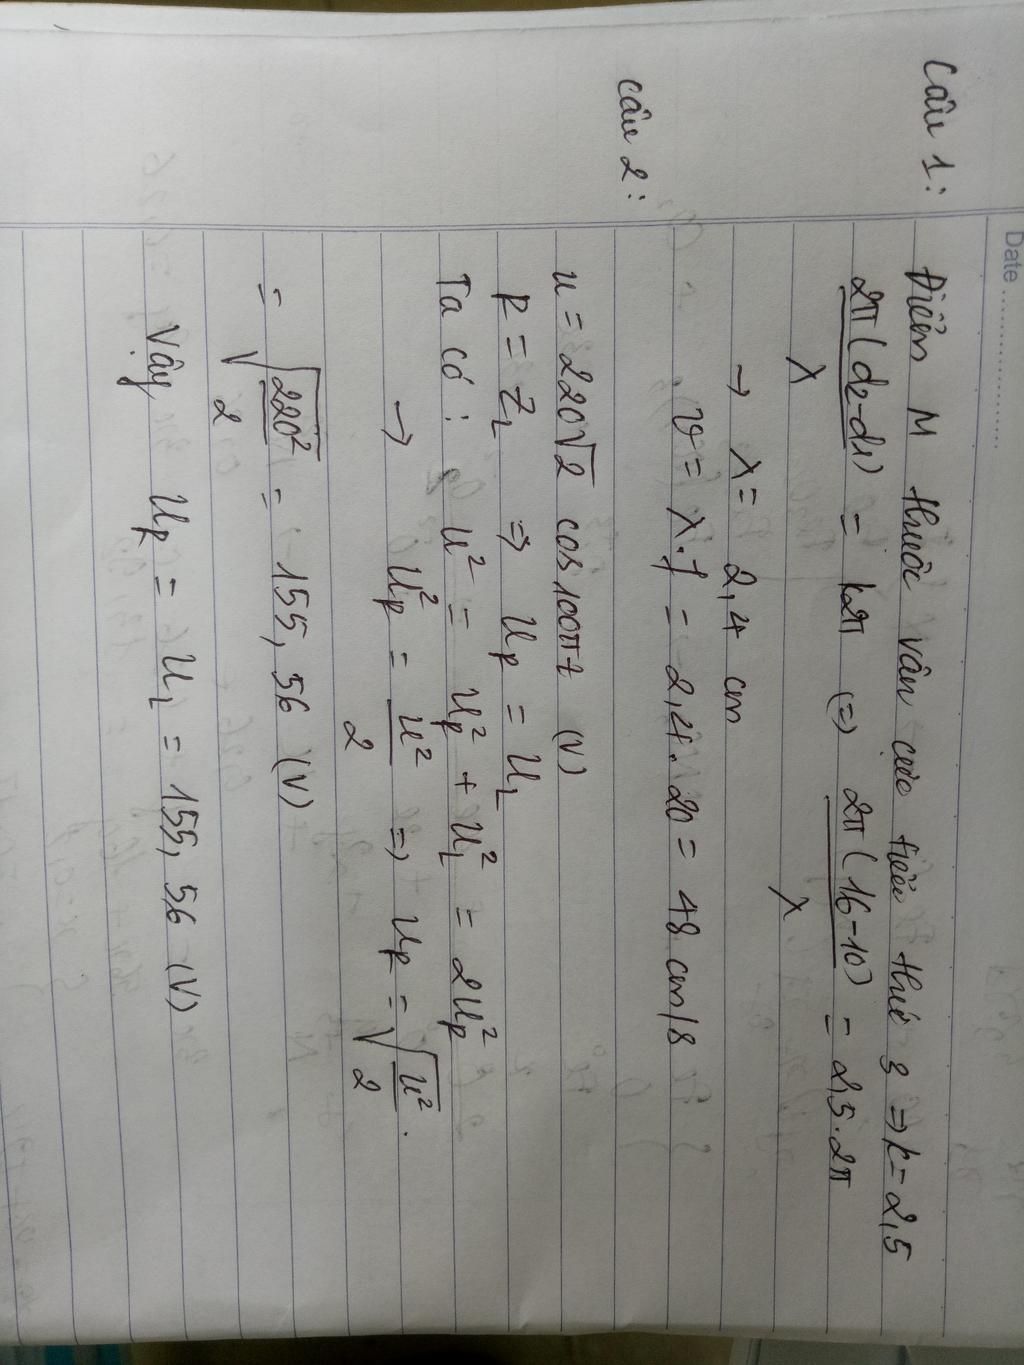 Date ....................
Câu 1: Điểm M thuộc vân cực tiểu thứ 3 => k = 2,5
2π(d2-d1)/λ = k2π (=) 2π(16-10)/λ = 2,5.2π
→ λ = 2,4 cm
v = λ.f = 2,4. 20 = 48 cm/s
Câu 2:
u = 220√2 cos100πt (V)
R = ZL => UR = UL
Ta có: U² = UR² + UL² = 2UR²
→ UR² = U²/2 => UR = √U²/2.
= √220²/2 = 155,56 (V)
Vậy UR = UL = 155,56 (V)